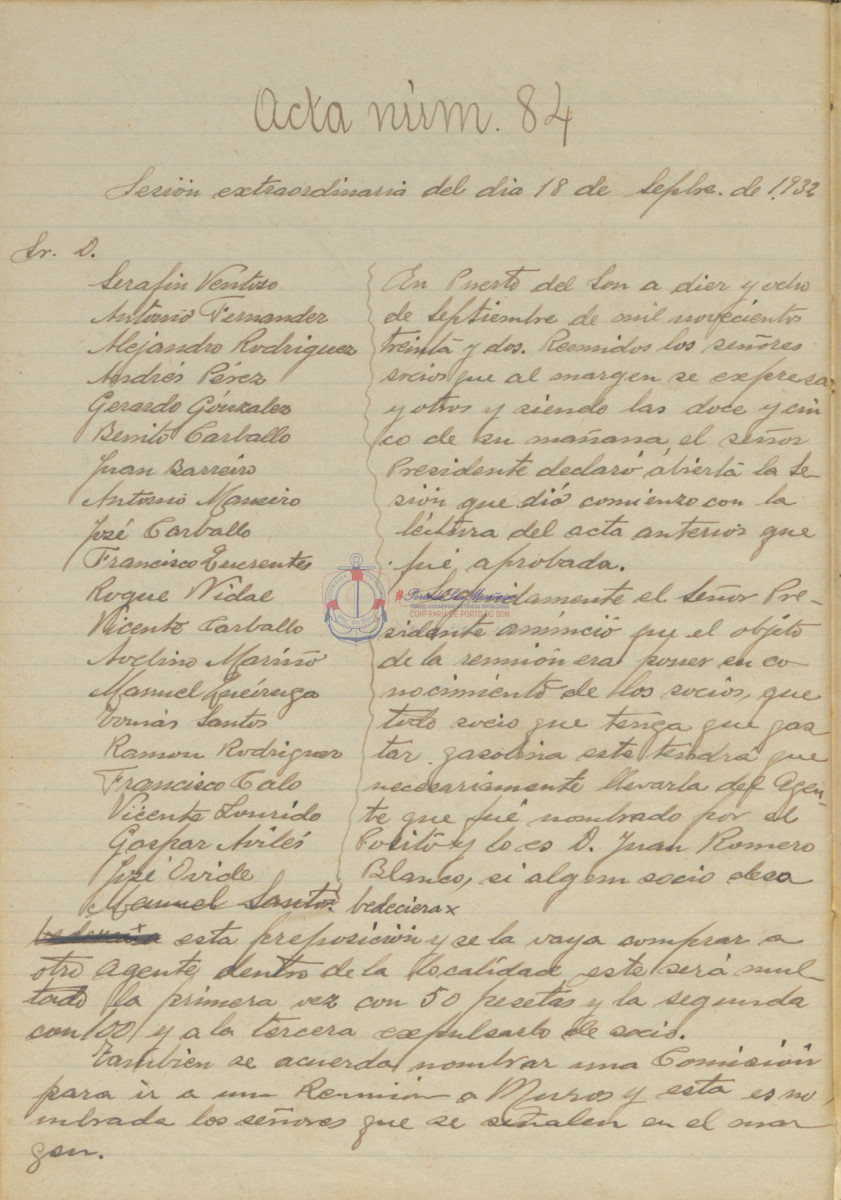 Acta núm. 84
Sesión extraordinaria del dia 18 de Sepbre. de 1.932
Sr. D.
Serafin Ventoso
Antonio Fernandez
Alejandro Rodriguez
Andrés Pérez
Gerardo Gónzalez
Benito Carballo
Juan Barreiro
Antonio Maneiro
José Carballo
Francisco
Roque Vidal
Vicente Carballo
Avelino Mariño
Manuel Queiruga
Tomás Santos
Ramon Rodriguez
Francisco Calo
Vicente Lourido
Gaspar Avilés
José Ovide
Manuel Santos.
En Puerto del Son a diez y ocho
de Septiembre de mil novecientos
treinta y dos. Reunidos los señores
socios que al margen se expresa
y otros y siendo las doce y cin
co de su mañana el señor
Presidente declaró abierta la Se-
sión que dió comienzo con la
léitura del acta anterior que
fué aprobada.
Seguidamente el Señor Pre-
sidente anunció que el objeto
de la reunión era poner en co
nocimiento de los socios, que
todo socio que tenga que gas
tar gasolina este tendrá que
necesariamente llevarla del Agen-
te que fué nombrado por el
Posito y lo es D. Juan Romero
Blanco, si algun socio deso
bedeciera x
esta preposición y se la vaya comprar a
otro Agente dentro de la localidad este será mul
tado la primera vez con 50 pesetas y la segunda
con 100 y a la tercera expulsarlo de socio.
Tambien se acuerda nombrar una Comisión
para ir a una Reunión a Muros y esta es no
mbrada los señores que se señalen en el mar
gen.
CONFRARÍA DE PORTO DO SON